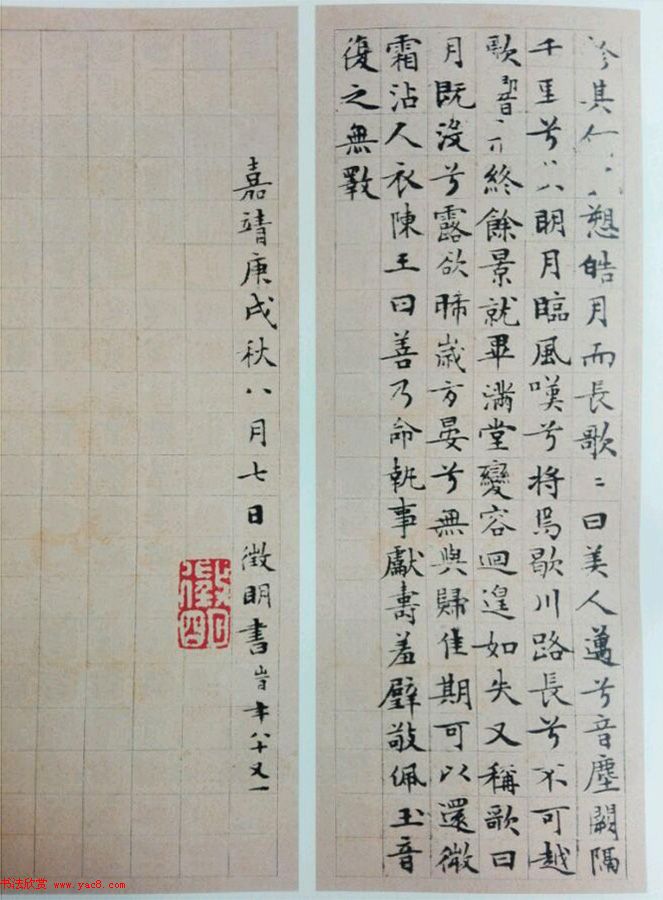 其愬皓月而長歌〻曰美人邁兮音塵闕隔
千里兮眀月臨風嘆兮將焉歇川路長兮不可越
歌響終餘景就畢滿堂變容迴遑如失又稱歌曰
月既沒兮露欲晞歲方晏兮無與歸佳期可以還微
霜沾人衣陳王曰善乃命執事獻壽羞璧敬佩玉音
復之無斁
嘉靖庚戌秋八月七日徵明書旹年八十又一
徵明
书法欣赏 www.yac8.com